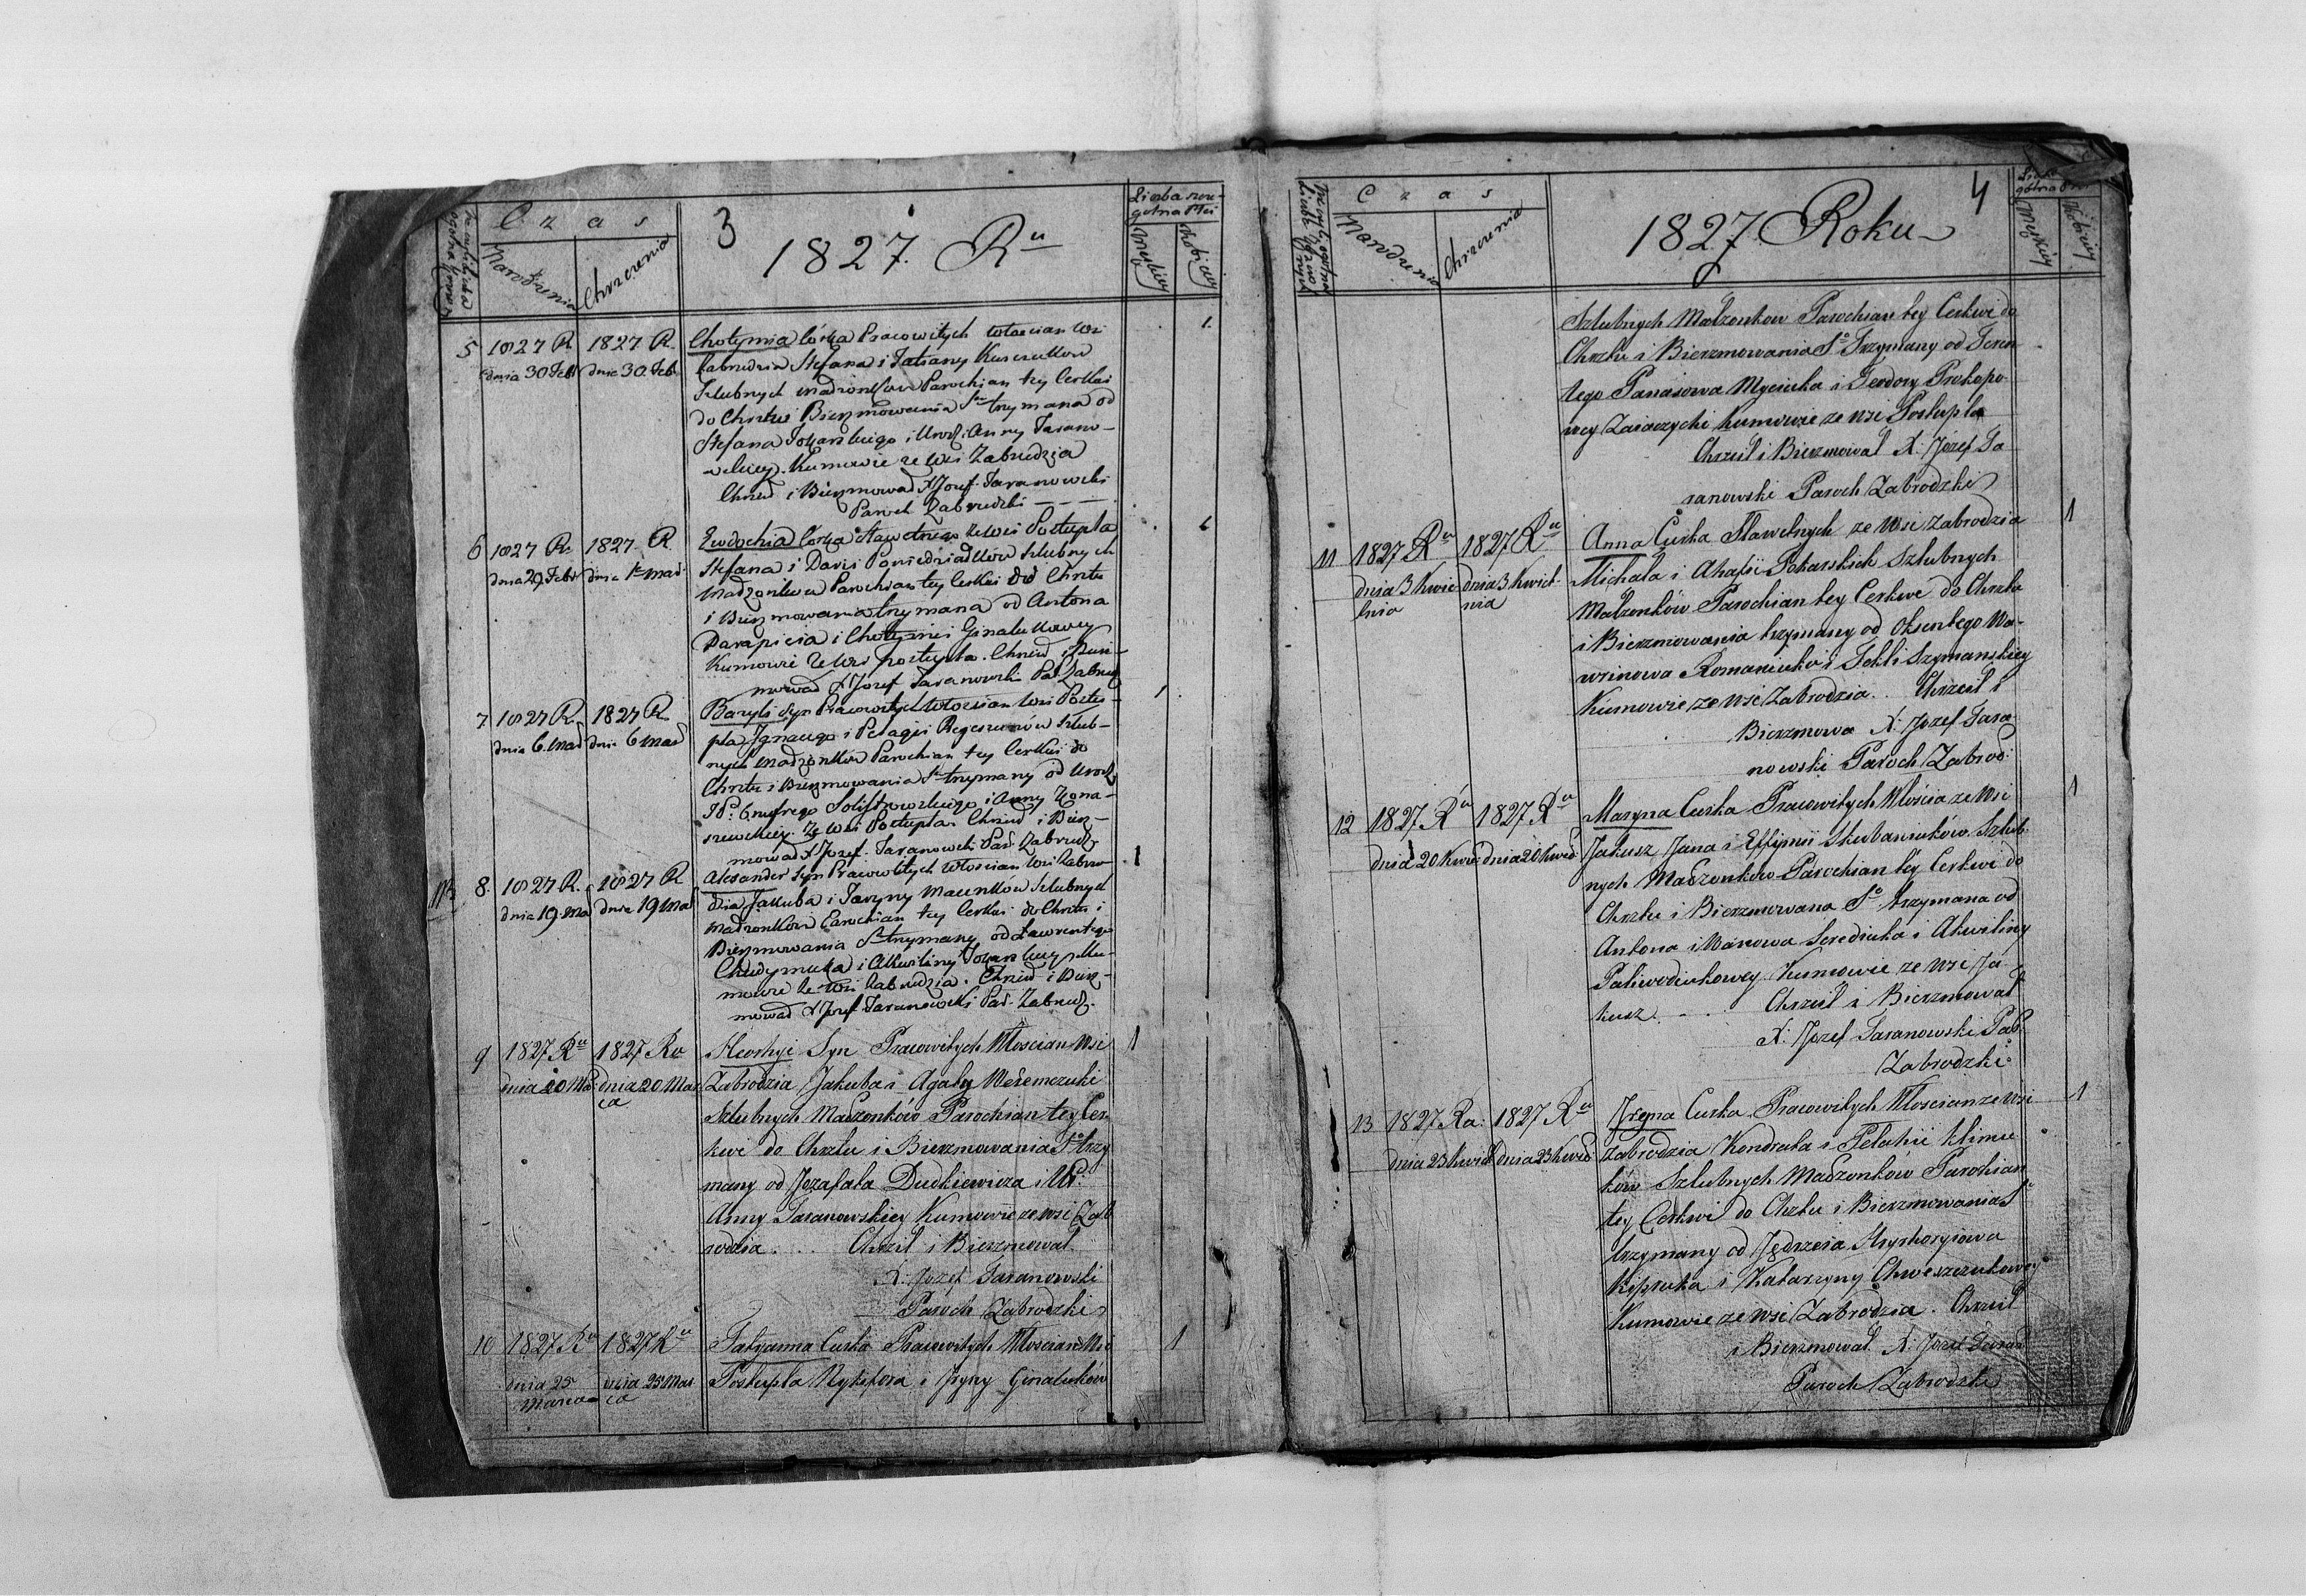 3
1827. Ru
Czas
Narodzenia
Chrzczenia
Liczba szcze-
gólna Płci
Męskiey
Kobiecey
5
1827 R.
dnia 30 Febr
1827 R.
dnia 30. Febr
Chotymia Córka Pracowitych włoscian wsi
Zabrudzia Stefana i Tatiany
Szlubnych Małżonków Parochian tey Cerkwi
do Chrztu i Bierzmowania trzymana od
Stefana Tokarskiego i Urodz: Anny Tarano-
wskiey. Kumowie ze wsi Zabrudzia
Chrzcił i Bierzmował X Jozef Taranowski
Paroch Zabrudzki
1.
6
1827 R.
dnia 29 Febr
1827 R
dnia 1 Mar
Ewdochia Córka Sławetnego ze wsi Postupla
Stefana i Darii Poniedziałków Szlubnych
Małżonków Parochian tey Cerkwi do Chrztu
i Bierzmowania trzymana od Antona
Parapicia i Chotymii Ginalukowey
Kumowie ze wsi Postupla. Chrzcił i Bierz-
mował X Jozef Taranowski Par. Zabrudz
1
7
1827 R.
dnia 6 Mar
1827 R.
dnia 6 Mar
Bazyli Syn Pracowitych Włoscian wsi Postu-
pla Ignacego i Pelagii Szlub-
nych Małżonków Parochian tey Cerkwi do
Chrztu i Bierzmowania trzymany od Urodz
i Anny
ze wsi Postupla. Chrzcił i Bierz-
mował X Jozef Taranowski Par. Zabrudz.
1
8.
1827 R.
dnia 19 Mar
1827 R
dnia 19 Mar
Alexander Syn Pracowitych Włoscian wsi Zabru-
dzia Jakuba i Taryny Szlubnych
Małżonków Parochian tey Cerkwi do Chrztu i
Bierzmowania trzymany od Ławrentego
i Akwiliny Tokarskiey Ku-
mowie ze wsi Zabrudzia. Chrzcił i Bierz-
mował X Jozef Taranowski Par. Zabrudz.
1
9
1827 Ru
dnia 20 Mar
1827 Ru
dnia 20 Mar
ca
Heorhyi Syn Pracowitych Włoscian wsi
Zabrodzia Jakuba i Agaty Weremczuki
Szlubnych Małżonków Parochian tey Cer
kwi do Chrztu i Bierzmowania trzy
many od Jozafata Dudkiewicza i
Anny Taranowskiey Kumowie ze wsi Zab
rodzia. Chrzcił i Bierzmował
X. Jozef Taranowski
Paroch Zabrodzki
1
10
1827 Ru
dnia 25
Marca
1827 Ru
dnia 25 Mar
ca
Tatyanna Curka Pracowitych Włoscian wsi
Postupla Nykifora i Jryny Ginaluków
1
4
1827. Roku
Czas
Narodzenia
Chrzczenia
Męskiey
Kobiecey
Szlubnych Małżonkow Parochian tey Cerkwi do
Chrztu i Bierzmowania So Trzymany od Teren
tego Panasowa Mysiuka i Teodory Prokopo
wey Zaiaczychi Kumowie ze wsi Postupla
Chrzcił i Bierzmował X. Jozef Ta
ranowski Paroch Zabrodzki
11
1827 Ru
dnia 3 Kwie
tnia
1827 Ru
dnia 3 Kwiet
nia
Anna Curka Sławetnych ze wsi Zabrodzia
Michała i Ahafii Tokarskich Szlubnych
Małżonków Parochian tey Cerkwi do Chrztu
i Bierzmowania trzymany od Oksentego Wa-
wrinowa Romaniuka i Tekli Szymanskiey
Kumowie ze wsi Zabrodzia. Chrzcił i
Bierzmowa X. Jozef Tara
nowski Paroch Zabrod:
1
12
1827 Ru
dnia 20 Kwie
1827 Ru
dnia 20 Kwie
Maryna Curka Pracowitych Włościa ze wsi
Jakusz Jana i Effymii Skubaniuków Szlub
nych Małżonków Parochian tey Cerkwi do
Chrztu i Bierzmowana So trzymana od
Antona Iwanowa Serediuka i Akwiliny
Paliwodiukowey Kumowie ze wsi Ja
kusz. Chrzcił i Bierzmował
X. Jozef Taranowski Par.
Zabrodzki
1
13
1827 Ra.
dnia 23 Kwie
1827 Ru
dnia 23 Kwie
Jryna Curka Pracowitych Włoscian ze wsi
Zabrodzia Kondrata i Pelahii Klimu
ków Szlubnych Małżonków Parochian
tey Cerkwi do Chrztu i Bierzmowania
trzymany od Jędrzeia Hryhoryiowa
i Katarzyny Chweszczukowey
Kumowie ze wsi Zabrodzia. Chrzcił
i Bierzmował X. Jozef Taran
Paroch Zabrodzki
1